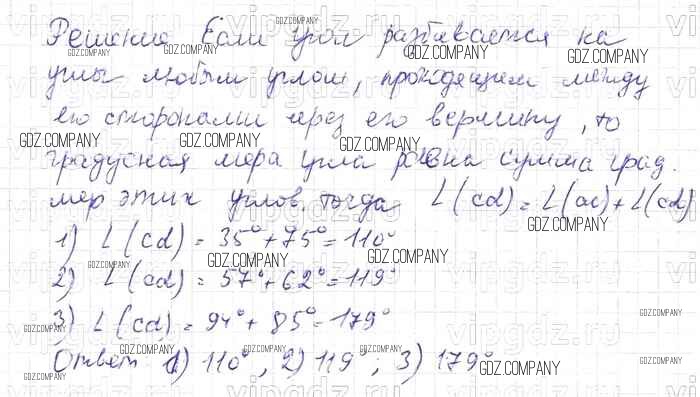 Решение Если угол разбивается на
углы любым углом, проходящим между
его сторонами через его вершину, то
градусная мера угла равна сумма град.
мер этих углов, тогда ∠(cd) = ∠(ac) + ∠(cd)
1) ∠(cd) = 35° + 75° = 110°
2) ∠(cd) = 57° + 62° = 119°
3) ∠(cd) = 94° + 85° = 179°
Ответ 1) 110°, 2) 119°, 3) 179°
GDZ.COMPANY
vipgdz.ru